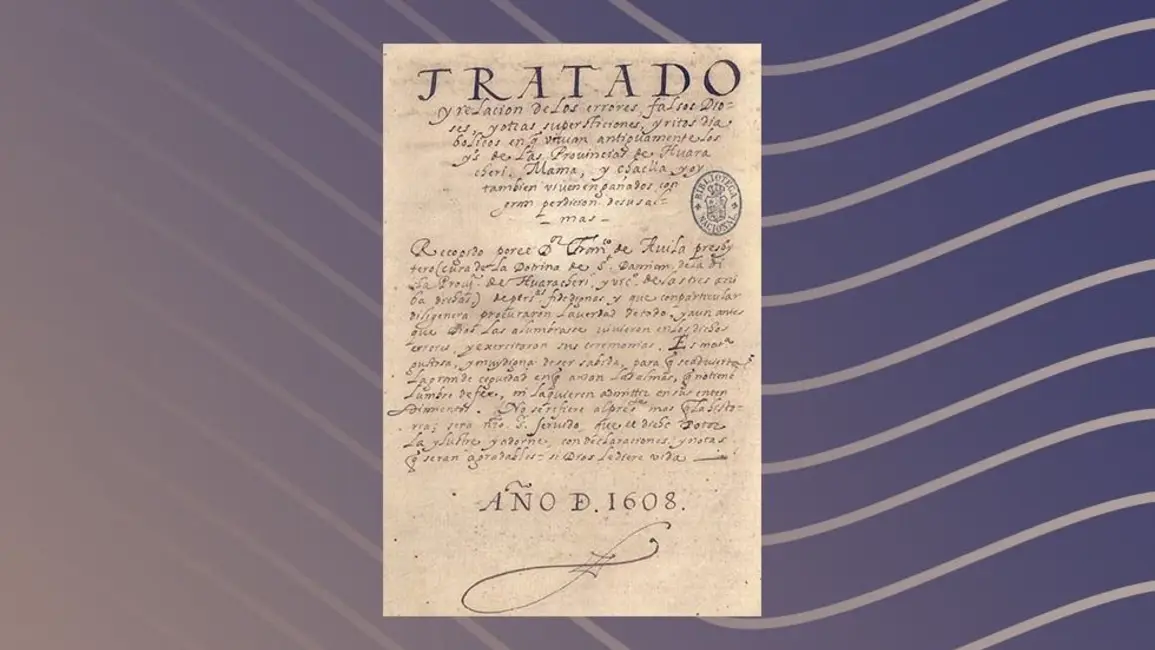 TRATADO
y relacion de los errores, falsos Dio-
ses, y otras supersticiones, y ritos dia-
bolicos en q̃ viuian antiguamente los
ys de las Prouincias de Huara
cheri, Mama, y chaclla y oy
tambien viuen engañados con
gran perdicion de sus al-
- mas -
BIBLIOTECA
NACIONAL
Recogido por el D.or Fran.co de Auila presby
tero (cura de la Dotrina de S.t Damian de la di
cha Prou.a de Huaracheri, y vic.o de las tres arri
ba dichas) de pers.as fidedignas y que con particular
diligencia procuraron la verdad de todo, y aun antes
que Dios las alumbrasse viuieron en los dichos
errores, y exercitaron sus ceremonias. Es mat.a
gustosa, y muy digna de ser sabida, para q̃ se aduierta
la grande ceguedad en q̃ andan las almas, q̃ no tiené
lumbre de fee, ni la quieren admitir en sus enten
dimientos. No se refiere al pres.te mas q̃ la histo-
ria; sera nr̃o S. seruido, que el dicho Dotor
la ylustre y adorne, con declaraciones, y notas
q̃ seran agradables - si Dios le diere vida
AÑO D. 1608.